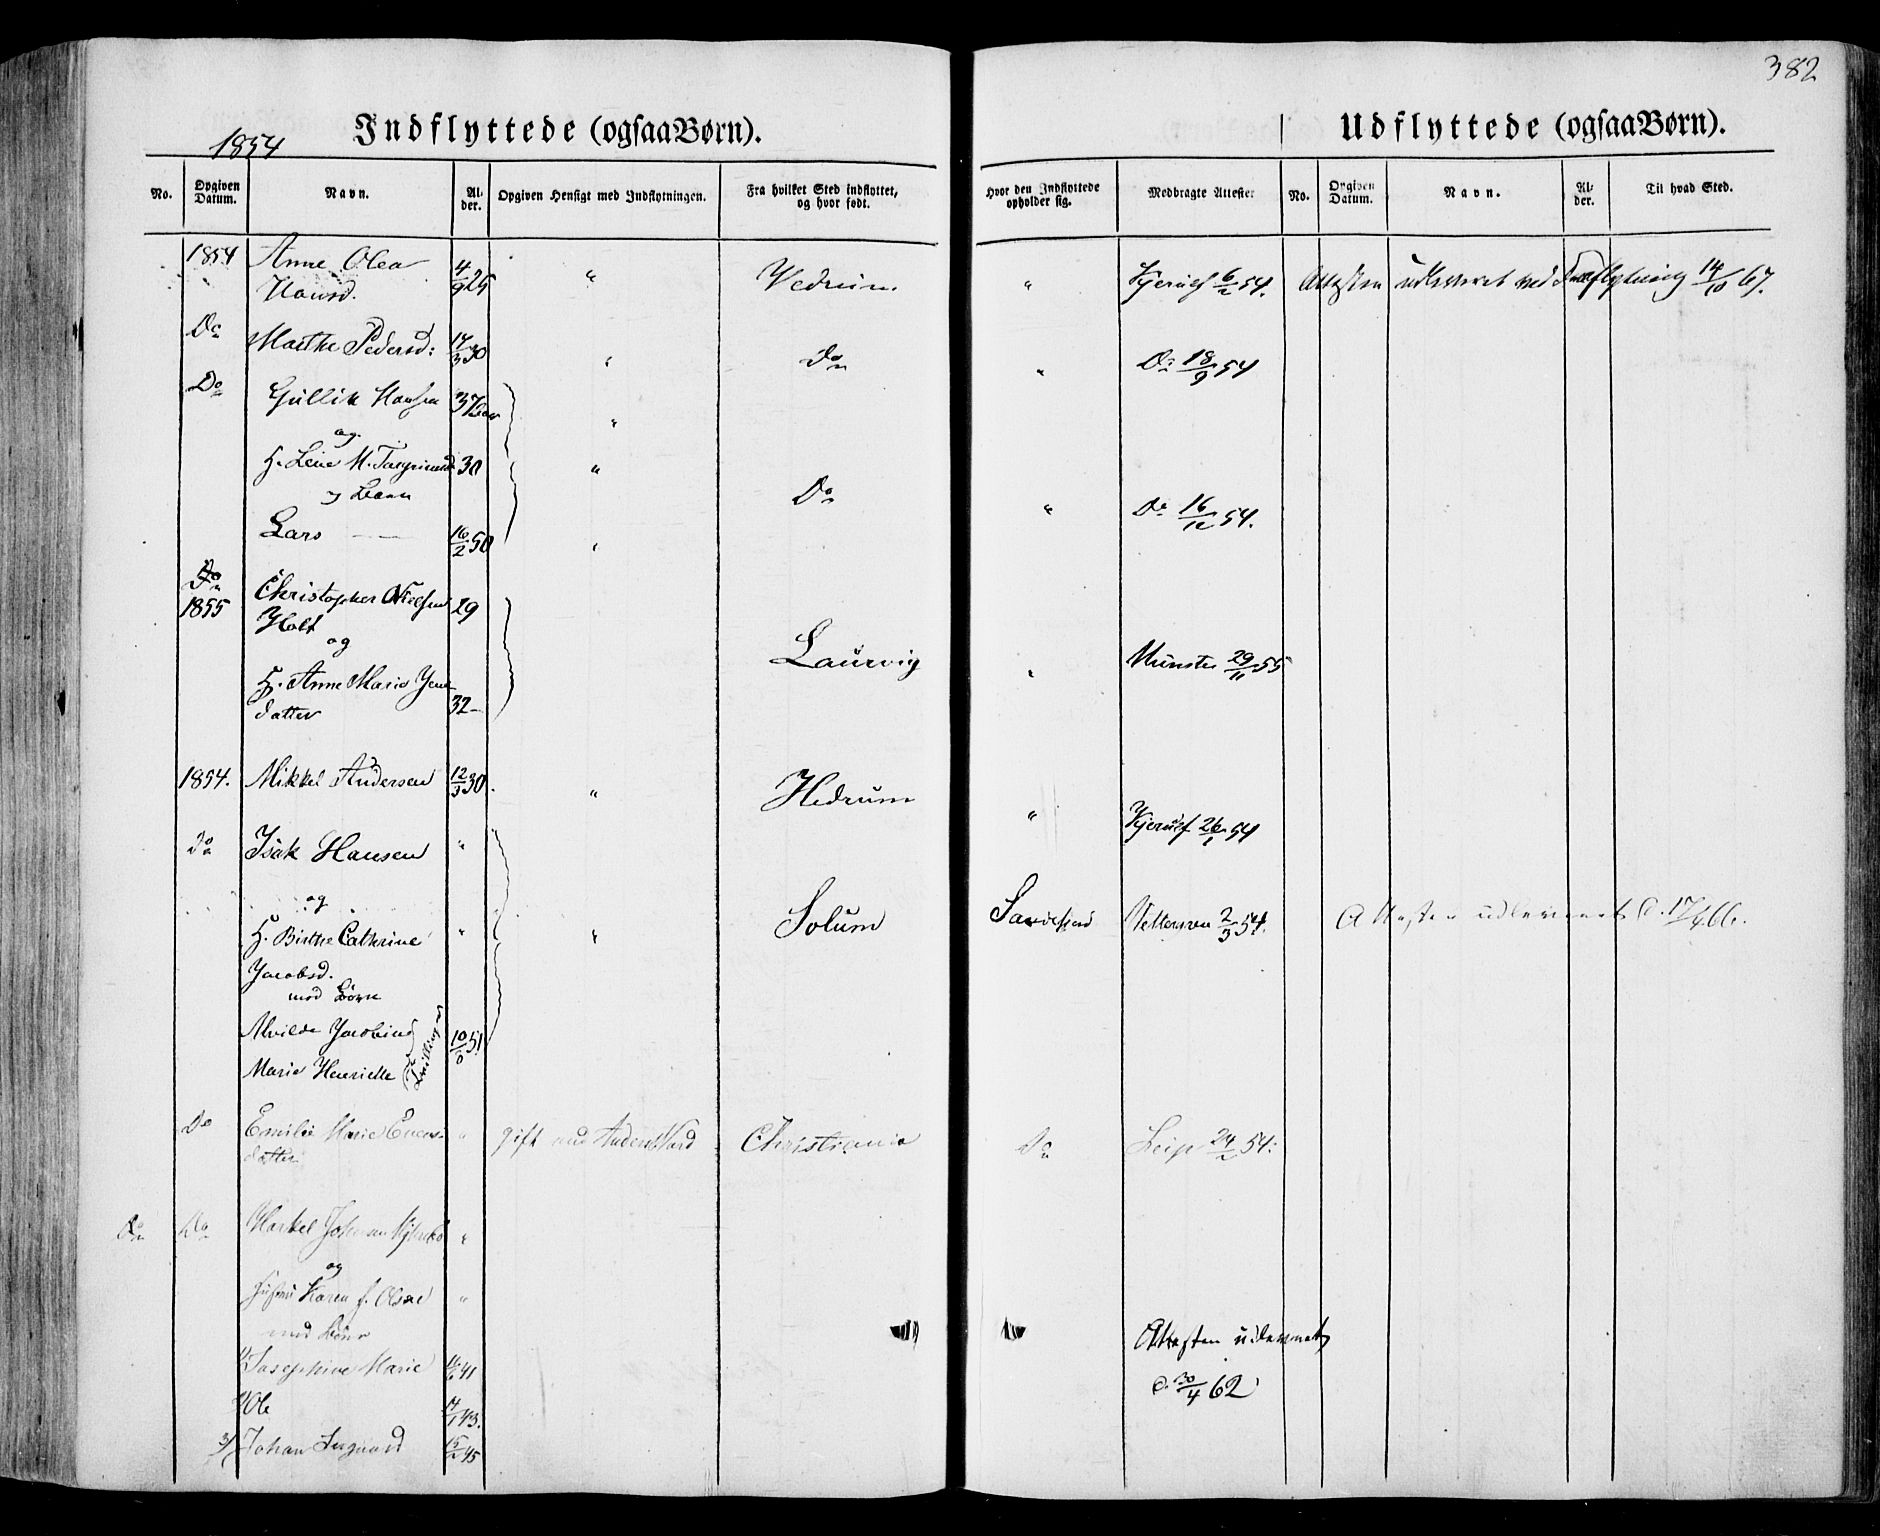 382
1854
Indflyttede (ogsaa Børn).
Udflyttede (ogsaa Børn).
No.
Opgiven Datum.
Navn.
Al-der.
Opgiven Hensigt med Indflytningen.
Fra hvilket Sted indflyttet, og hvor født.
Hvor den Indflyttede opholder sig.
Medbragte Attester
No.
Opgiven Datum.
Navn.
Al-der.
Til hvad Sted.
1854 Anne Olea 4/9 25 " Hedrum " Kjerulf 6/2 54. Attesten udleveret ved 14/10 67.
Hansd.
Do Marthe Pedersd: 17/3 30 " Do " Do 18/9 54
Do Gullik Hansen 37 "
og
H. Lene M. 30 " Do " Do 16/12 54.
og Barn
Lars — 16/2 50 "
Do
1855 Christopher Nielsen 29
Holt
og Laurvig " Munster 29/11 55
H. Anne Marie
datter 32 –
1854. Mikkel Andersen 12/3 30. " Hedrum " Kjerulf 26/1 54
Do Isak Hansen "
og Solum Sandefjord 2/3 54. Attesten udleveret d. 17/4 66.
H. Birthe Cathrine " "
Jacobsd.
med Børn
Alvilde Jacobine 10/10 51
Marie Henriette Tvillinger
Do Emilie Marie " gift med Anders Christiania Do 24/2 54.
datter
Do Do Johan "
og
Hustru Karen f. Olsen "
med Børn
Attesten udleveret
1) Josephine Marie 41
d. 30/4 62
2) Ole 43.
3) Johan 15/2 45